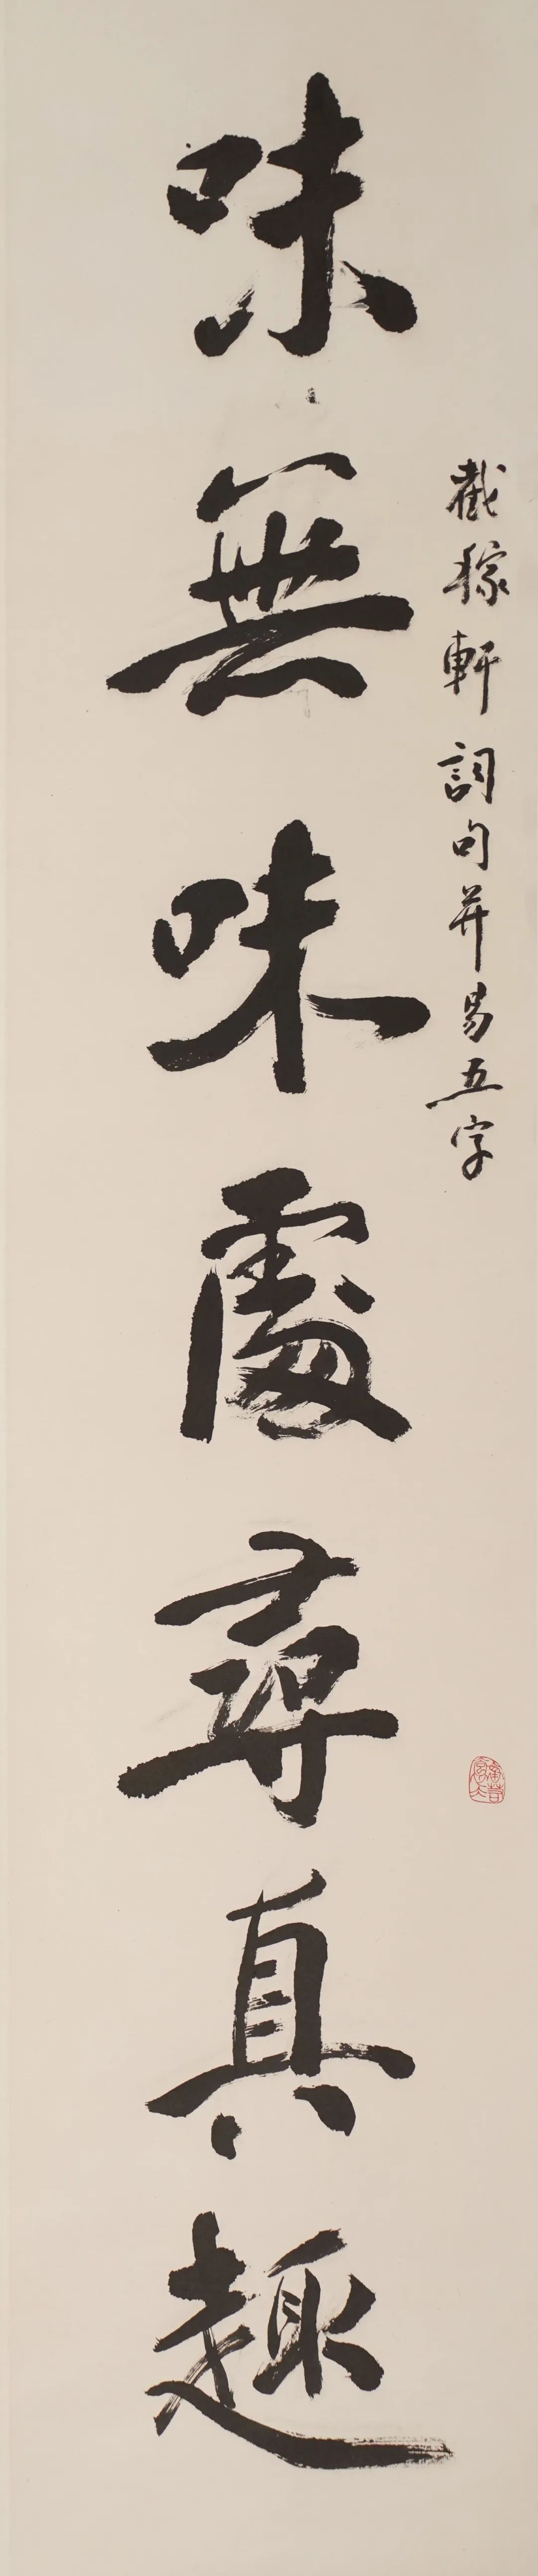 截稼軒詞句并易五字
味無味處尋真趣